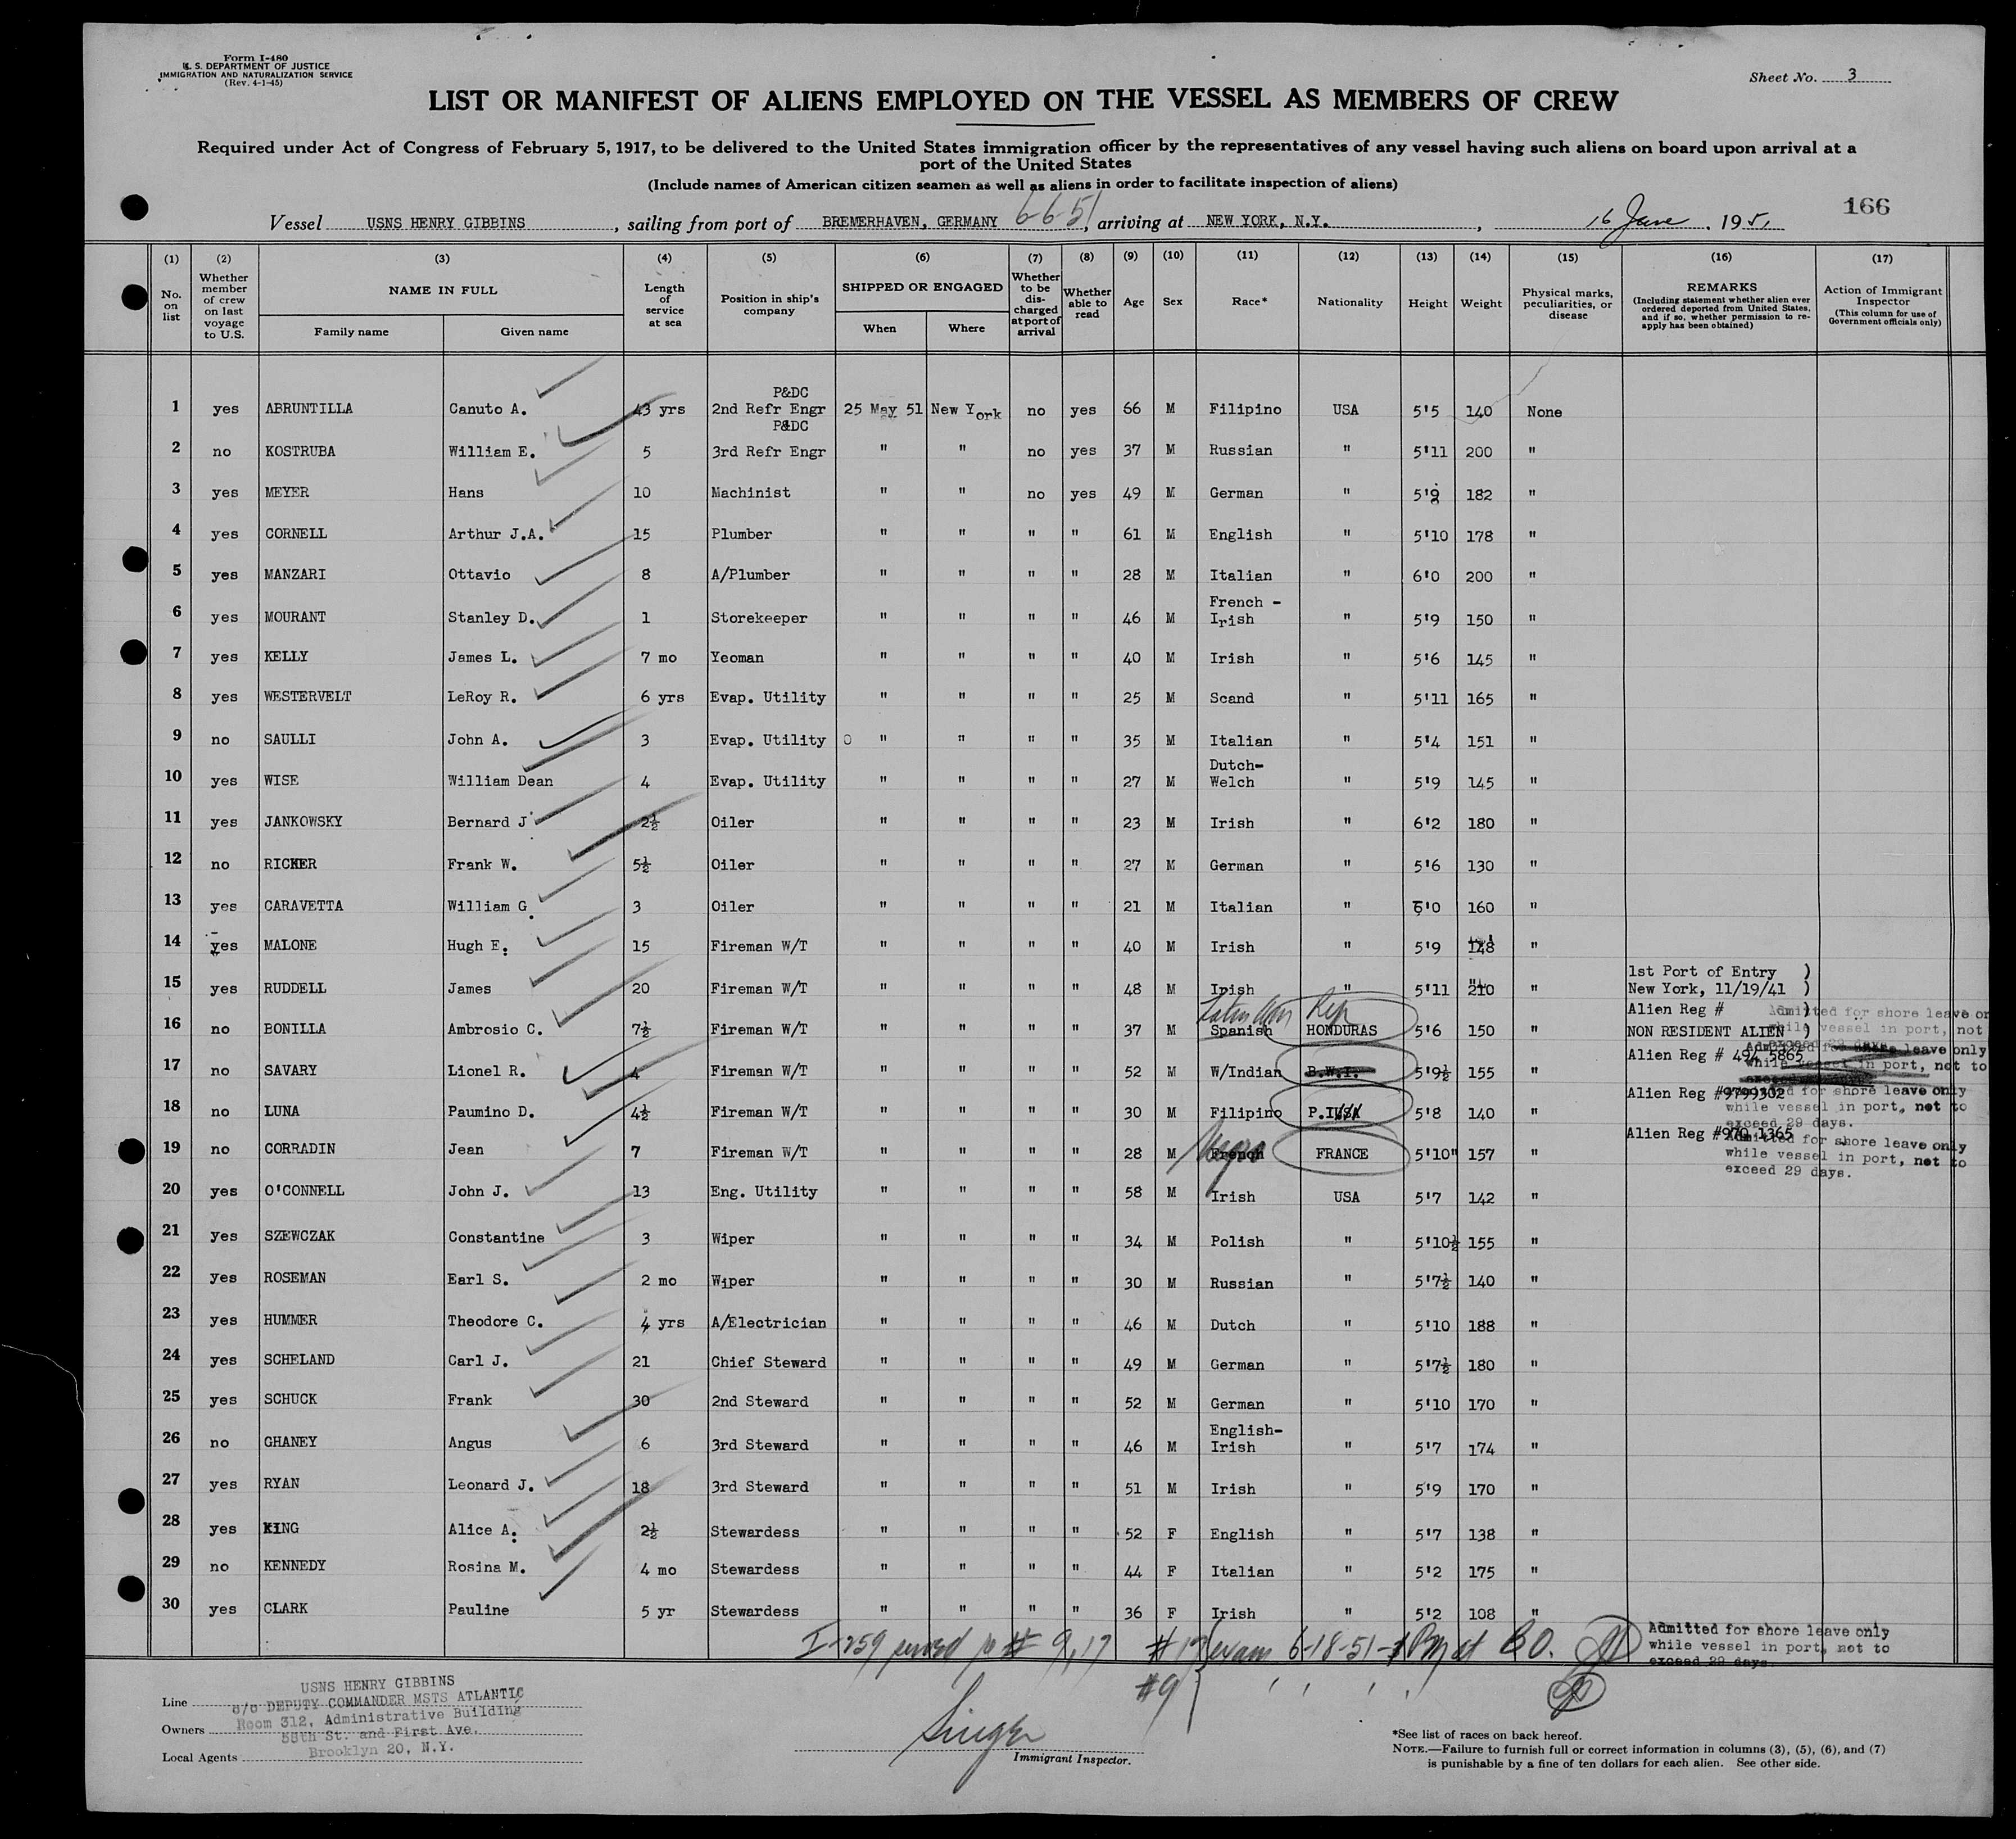 Form I-480
U. S. DEPARTMENT OF JUSTICE
IMMIGRATION AND NATURALIZATION SERVICE
(Rev. 4-1-45)
Sheet No. 3
LIST OR MANIFEST OF ALIENS EMPLOYED ON THE VESSEL AS MEMBERS OF CREW
Required under Act of Congress of February 5, 1917, to be delivered to the United States immigration officer by the representatives of any vessel having such aliens on board upon arrival at a
port of the United States
(Include names of American citizen seamen as well as aliens in order to facilitate inspection of aliens)
166
Vessel USNS HENRY GIBBINS, sailing from port of BREMERHAVEN, GERMANY 6-6-51, arriving at NEW YORK, N.Y., 16 June, 1951
(1) (2) (3) (4) (5) (6) (7) (8) (9) (10) (11) (12) (13) (14) (15) (16) (17)
No. on list
Whether member of crew on last voyage to U.S.
NAME IN FULL
Family name
Given name
Length of service at sea
Position in ship's company
SHIPPED OR ENGAGED
When
Where
Whether to be discharged at port of arrival
Whether able to read
Age
Sex
Race*
Nationality
Height
Weight
Physical marks, peculiarities, or disease
REMARKS
(Including statement whether alien ever ordered deported from United States, and if so, whether permission to reapply has been obtained)
Action of Immigrant Inspector
(This column for use of Government officials only)
P&DC
1 yes ABRUNTILLA Canuto A. 43 yrs 2nd Refr Engr 25 May 51 New York no yes 66 M Filipino USA 5'5 140 None
P&DC
2 no KOSTRUBA William E. 5 3rd Refr Engr " " no yes 37 M Russian " 5'11 200 "
3 yes MEYER Hans 10 Machinist " " no yes 49 M German " 5'9 182 "
4 yes CORNELL Arthur J.A. 15 Plumber " " " " 61 M English " 5'10 178 "
5 yes MANZARI Ottavio 8 A/Plumber " " " " 28 M Italian " 6'0 200 "
6 yes MOURANT Stanley D. 1 Storekeeper " " " " 46 M French - Irish " 5'9 150 "
7 yes KELLY James L. 7 mo Yeoman " " " " 40 M Irish " 5'6 145 "
8 yes WESTERVELT LeRoy R. 6 yrs Evap. Utility " " " " 25 M Scand " 5'11 165 "
9 no SAULLI John A. 3 Evap. Utility 0 " " " " 35 M Italian " 5'4 151 "
10 yes WISE William Dean 4 Evap. Utility " " " " 27 M Dutch- Welch " 5'9 145 "
11 yes JANKOWSKY Bernard J 2½ Oiler " " " " 23 M Irish " 6'2 180 "
12 no RICKER Frank W. 5½ Oiler " " " " 27 M German " 5'6 130 "
13 yes CARAVETTA William G. 3 Oiler " " " " 21 M Italian " 6'0 160 "
14 yes MALONE Hugh E. 15 Fireman W/T " " " " 40 M Irish " 5'9 148 "
15 yes RUDDELL James 20 Fireman W/T " " " " 48 M Irish " 5'11 210 "
1st Port of Entry )
New York, 11/19/41 )
Alien Reg # )
16 no BONILLA Ambrosio C. 7½ Fireman W/T " " " " 37 M Spanish Latin Am Rep HONDURAS 5'6 150 " NON RESIDENT ALIEN )
Admitted for shore leave or
while vessel in port, not
17 no SAVARY Lionel R. 4 Fireman W/T " " " " 52 M W/Indian B.W.I. 5'9½ 155 " Alien Reg # 494 5865
Admitted for shore leave only
while vessel in port, not to
18 no LUNA Paumino D. 4½ Fireman W/T " " " " 30 M Filipino P.I. USA 5'8 140 " Alien Reg #9799302
Admitted for shore leave only
while vessel in port, not to
exceed 29 days.
19 no CORRADIN Jean 7 Fireman W/T " " " " 28 M French Negro FRANCE 5'10" 157 " Alien Reg #970 1365
Admitted for shore leave only
while vessel in port, not to
exceed 29 days.
20 yes O'CONNELL John J. 13 Eng. Utility " " " " 58 M Irish USA 5'7 142 "
21 yes SZEWCZAK Constantine 3 Wiper " " " " 34 M Polish " 5'10½ 155 "
22 yes ROSEMAN Earl S. 2 mo Wiper " " " " 30 M Russian " 5'7½ 140 "
23 yes HUMMER Theodore C. 4 yrs A/Electrician " " " " 46 M Dutch " 5'10 188 "
24 yes SCHELAND Carl J. 21 Chief Steward " " " " 49 M German " 5'7½ 180 "
25 yes SCHUCK Frank 30 2nd Steward " " " " 52 M German " 5'10 170 "
26 no GHANEY Angus 6 3rd Steward " " " " 46 M English- Irish " 5'7 174 "
27 yes RYAN Leonard J. 18 3rd Steward " " " " 51 M Irish " 5'9 170 "
28 yes KING Alice A. 2½ Stewardess " " " " 52 F English " 5'7 138 "
29 no KENNEDY Rosina M. 4 mo Stewardess " " " " 44 F Italian " 5'2 175 "
30 yes CLARK Pauline 5 yr Stewardess " " " " 36 F Irish " 5'2 108 "
I-259 served # 9, 17 #17 exam 6-18-51 BO.
#9 " " " "
Admitted for shore leave only
while vessel in port, not to
exceed 29 days.
Line
Owners
Local Agents
USNS HENRY GIBBINS
c/o DEPUTY COMMANDER MSTS ATLANTIC
Room 312, Administrative Building
58th St. and First Ave.
Brooklyn 20, N.Y.
Singer
Immigrant Inspector.
*See list of races on back hereof.
NOTE.—Failure to furnish full or correct information in columns (3), (5), (6), and (7)
is punishable by a fine of ten dollars for each alien. See other side.